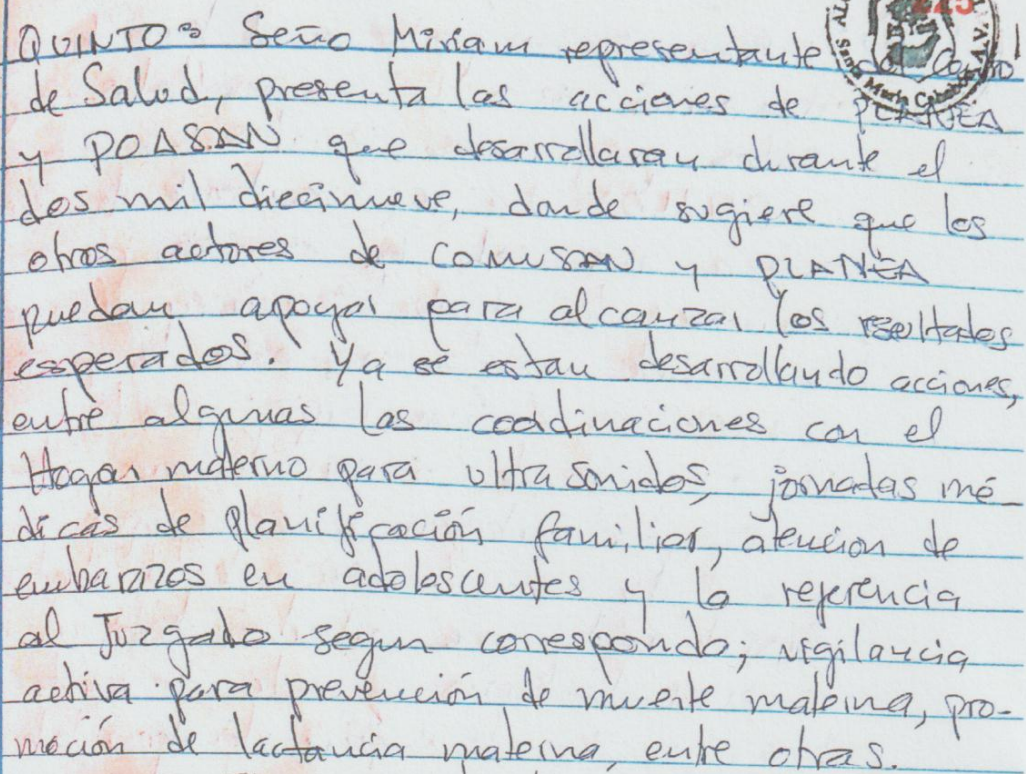 225
QUINTO: Seño Miriam representante del Centro
de Salud, presenta las acciones de PLANEA
y POASAN que desarrollaran durante el
dos mil diecinueve, donde sugiere que los
otros actores de COMUSAN y PLANEA
puedan apoyar para alcanzar los resultados
esperados. Ya se estan desarrollando acciones,
entre algunas las coordinaciones con el
Hogar materno para ultrasonidos, jornadas mé-
dicas de planificación familiar, atencion de
embarazos en adolescentes y la referencia
al Juzgado segun corresponda; vigilancia
activa para prevención de muerte materna, pro-
moción de lactancia materna, entre otras.